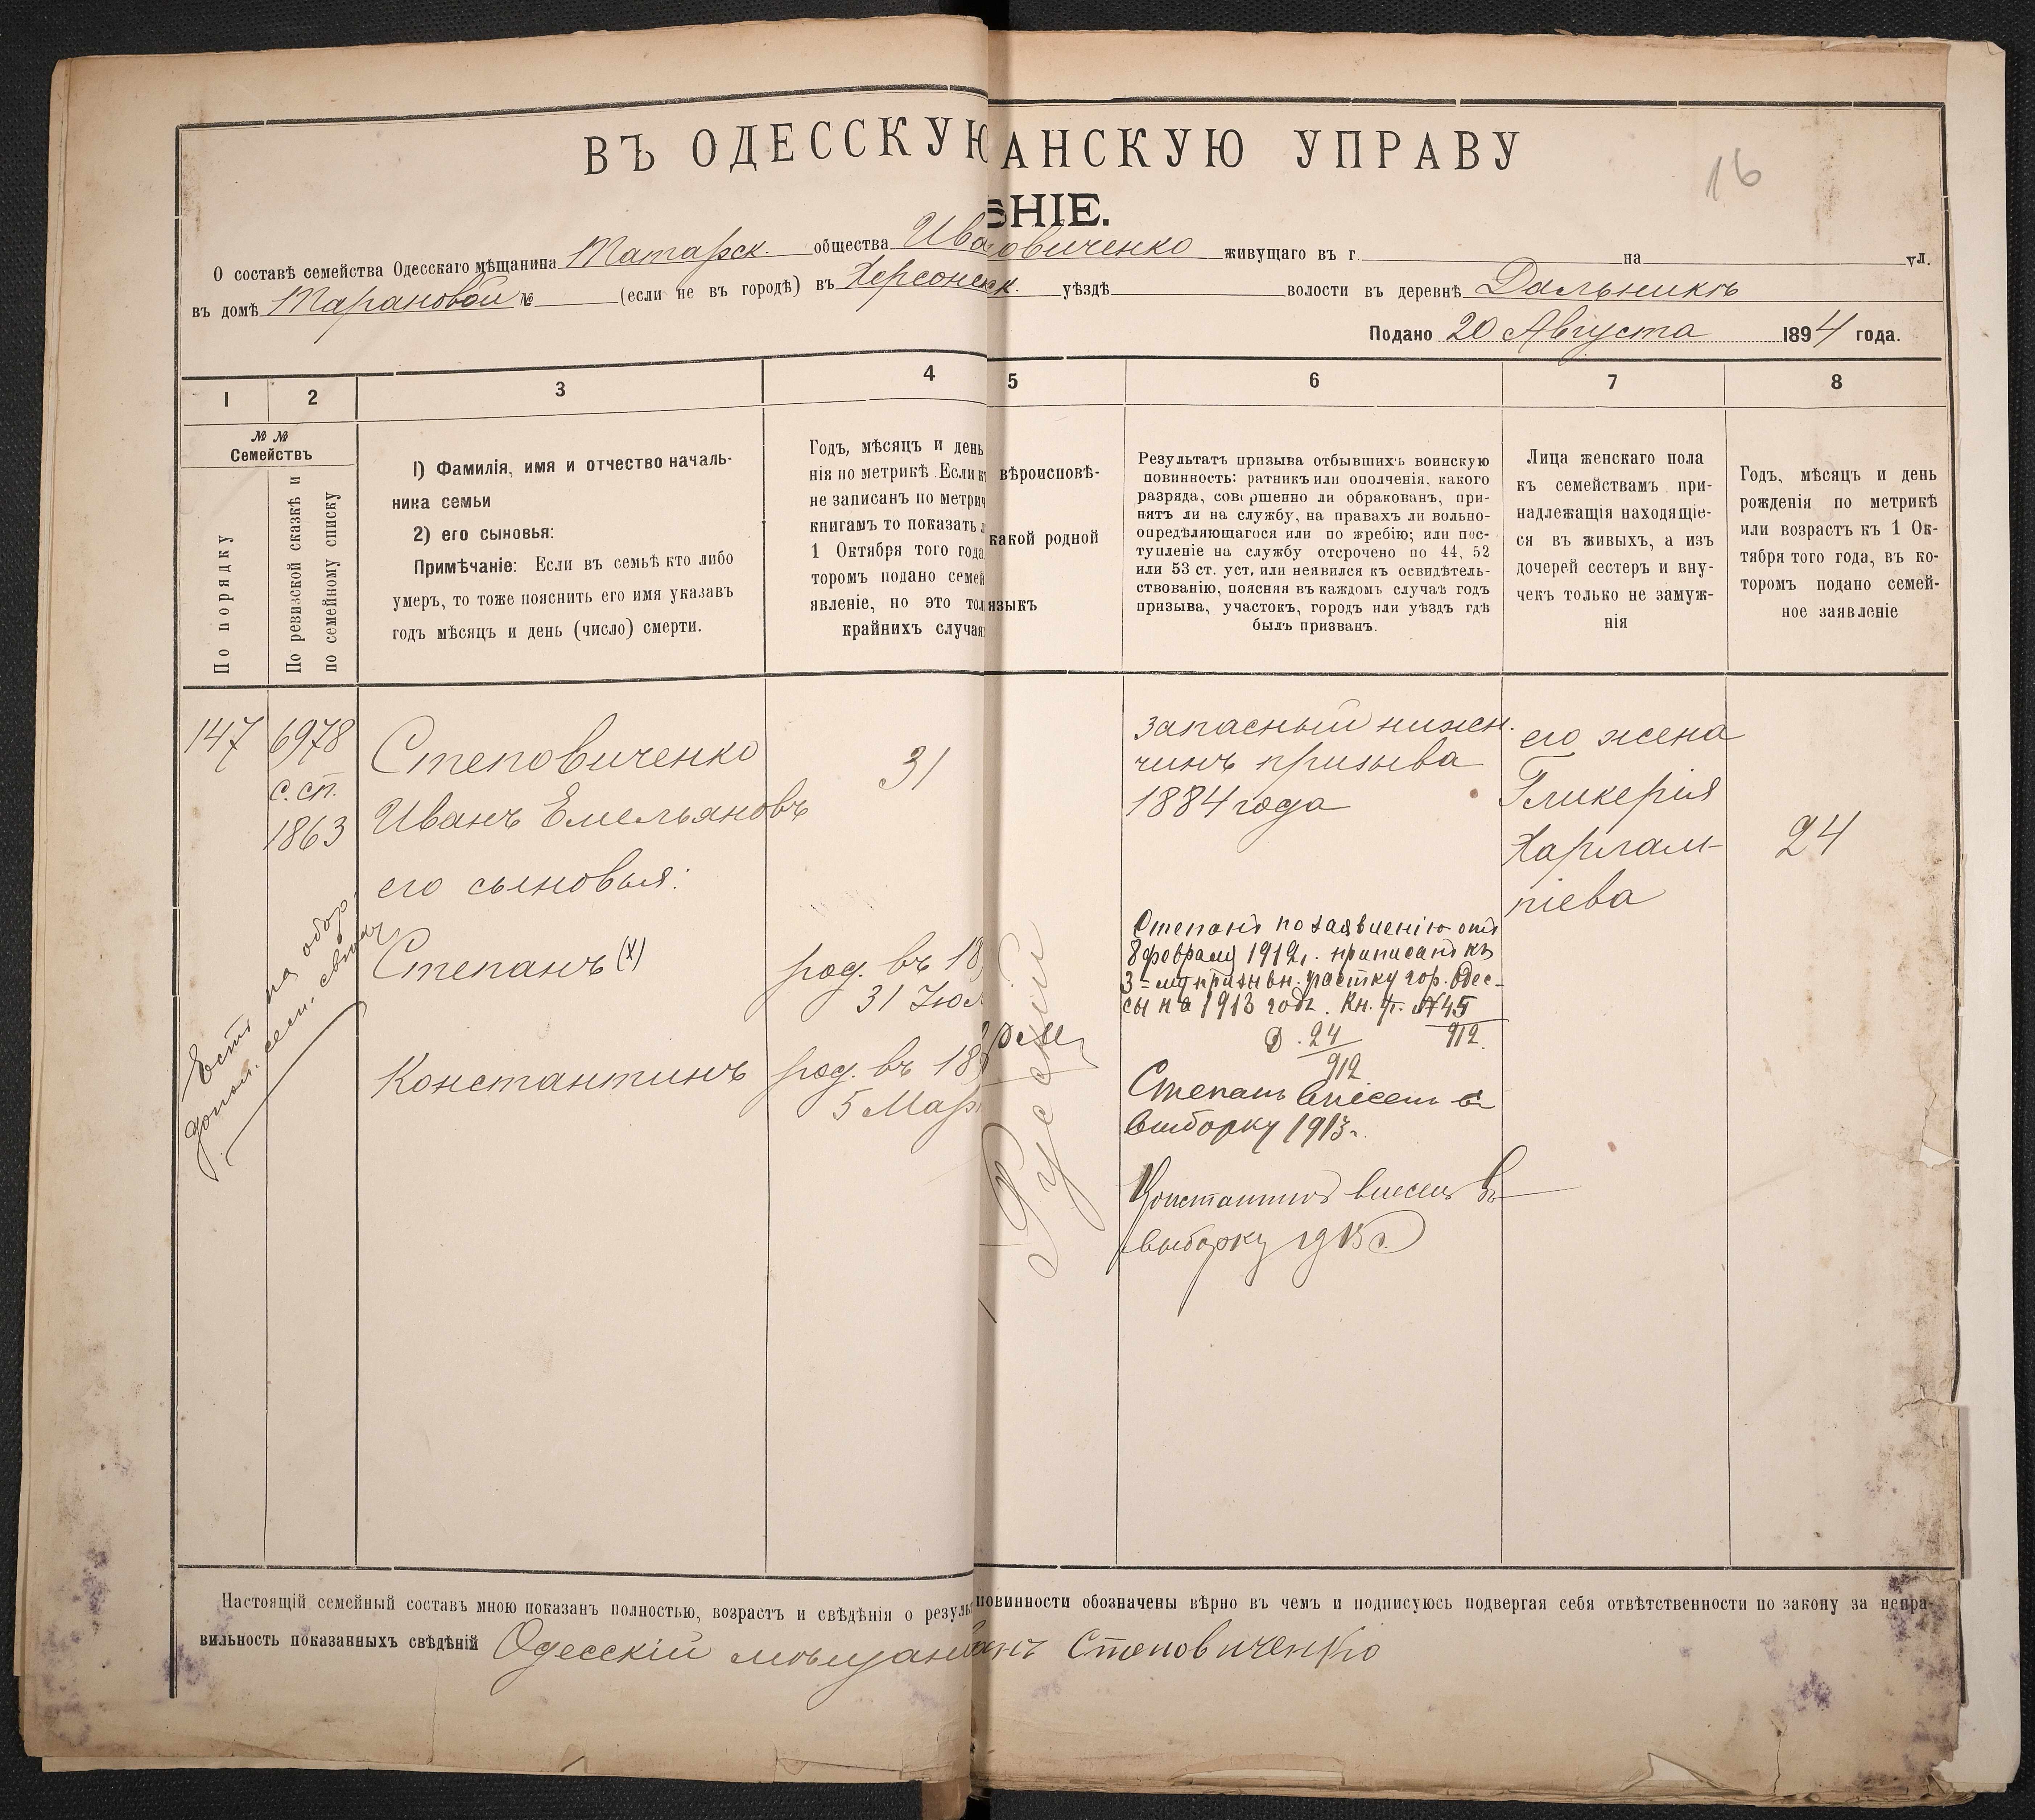 ВЪ ОДЕССКУЮ АНСКУЮ УПРАВУ
16
ЕНІЕ.
О составѣ семейства Одесскаго мѣщанина Татарск. общества Ива овиченко живущаго въ г на ул.
въ домѣ Тарановой № (если не въ городѣ) въ Херсонск. уѣздѣ волости въ деревнѣ Дальникъ
Подано 20 Августа 1894 года.
1 2 3 4 5 6 7 8
№ №
Семействъ
По порядку
По ревизской сказкѣ и
по семейному списку
1) Фамилія, имя и отчество началь-
ника семьи
2) его сыновья:
Примѣчаніе: Если въ семьѣ кто либо
умеръ, то тоже пояснить его имя указавъ
годъ мѣсяцъ и день (число) смерти.
Годъ, мѣсяцъ и день
нія по метрикѣ. Если к
не записанъ по метрич
книгамъ то показать л
1 Октября того года
торомъ подано семей
явленіе, но это тол
крайнихъ случая
вѣроисповѣ-
какой родной
языкъ
Результатъ призыва отбывшихъ воинскую
повинность: ратникъ или ополченія, какого
разряда, совершенно ли обракованъ, при-
нятъ ли на службу, на правахъ ли вольно-
опредѣляющагося или по жребію; или пос-
тупленіе на службу отсрочено по 44, 52
или 53 ст. уст. или неявился къ освидѣтель-
ствованію, поясняя въ каждомъ случаѣ годъ
призыва, участокъ, городъ или уѣздъ гдѣ
былъ призванъ.
Лица женскаго пола
къ семействамъ при-
надлежащія находящіе-
ся въ живыхъ, а изъ
дочерей сестеръ и вну-
чекъ только не замуж-
нія
Годъ, мѣсяцъ и день
рожденія по метрикѣ
или возрастъ къ 1 Ок-
тября того года, въ ко-
торомъ подано семей-
ное заявленіе
147
6978
с. сп.
1863
Степовиченко
Иванъ Емельяновъ
его сыновья:
Степанъ (х)
Константинъ
Есть на обор.
допол. сем.
31
род. въ 18
31 Июл
род. въ 18
5 Мар
Русский
запасный нижн.
чинъ призыва
1884 года
Степанъ по заявленію отъ
8 февраля 1912 г. приписанъ къ
3-му призывн. участку гор. Одес-
сы на 1913 годъ. Кн. №45
912.
Д. 24
912
Степанъ внесенъ в
выборку 1913 г.
Константинъ внесен въ
выборку
его жена
Гликерія
Харлам-
піева
24
Настоящій семейный составъ мною показанъ полностью, возрастъ и свѣдѣнія о резуль повинности обозначены вѣрно въ чемъ и подписуюсь подвергая себя отвѣтственности по закону за непра-
вильность показанныхъ свѣдѣній Одесскій мѣщан анъ Степовиченко